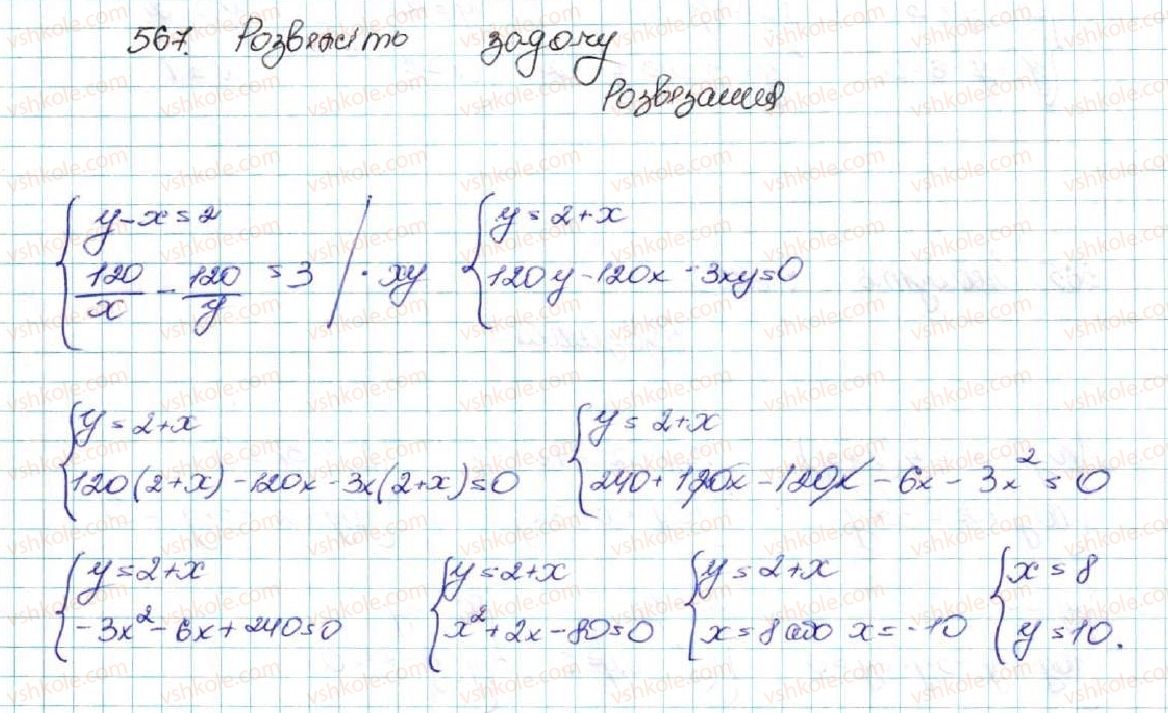 567. Розвяжіть задачу
Розвязання
{ y - x = 2
120/x - 120/y = 3 | · xy
{ y = 2 + x
120y - 120x - 3xy = 0
{ y = 2 + x
120(2 + x) - 120x - 3x(2 + x) = 0
{ y = 2 + x
240 + 120x - 120x - 6x - 3x² = 0
{ y = 2 + x
-3x² - 6x + 240 = 0
{ y = 2 + x
x² + 2x - 80 = 0
{ y = 2 + x
x = 8 або x = -10
{ x = 8
y = 10.